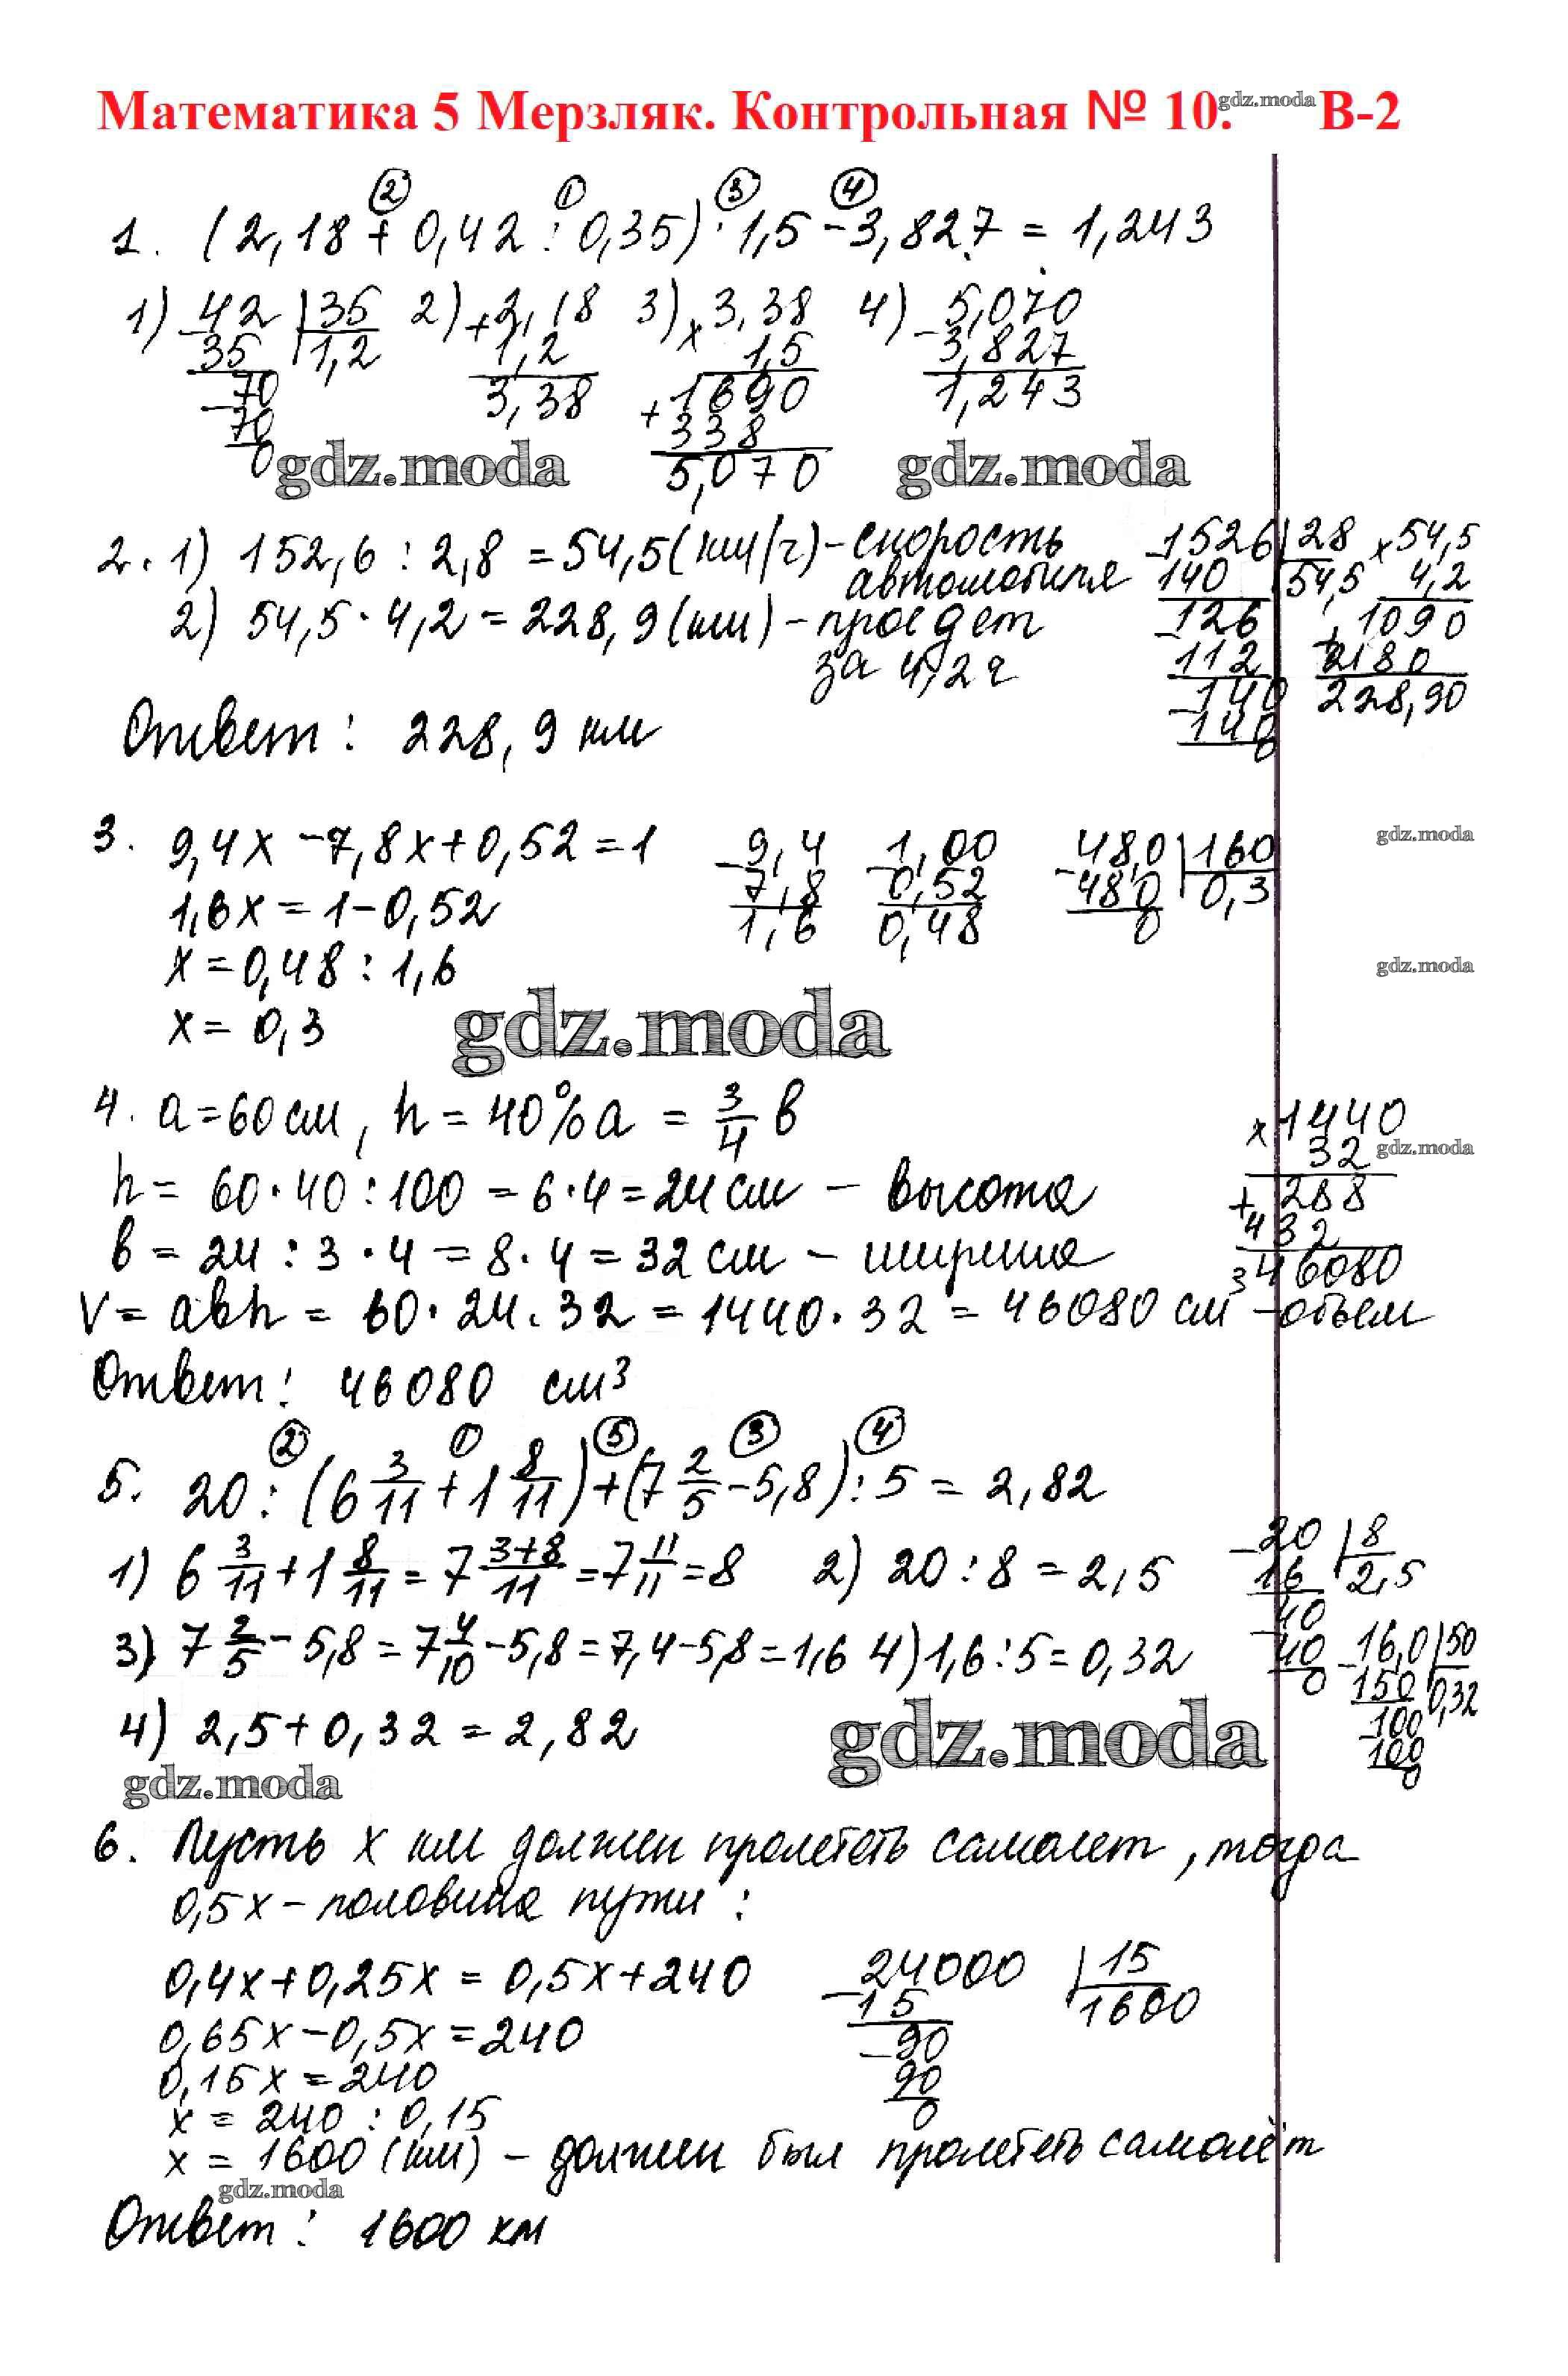 Математика 5 Мерзляк. Контрольная № 10. gdz.moda В-2
② ① ③ ④
1. (2,18 + 0,42 : 0,35) · 1,5 - 3,827 = 1,243
1) 42 | 35 2) + 2,18 3) × 3,38 4) - 5,070
35 1,2 1,2 1,5 3,827
70 3,38 1690 1,243
70 + 338
0 5,070
gdz.moda gdz.moda
2. 1) 152,6 : 2,8 = 54,5 (км/ч) - скорость автомобиля
2) 54,5 · 4,2 = 228,9 (км) - проедет за 4,2 ч
Ответ: 228,9 км
1526 | 28 × 54,5
140 54,5 4,2
126 1090
112 + 2180
140 228,90
140
0
3. 9,4x - 7,8x + 0,52 = 1 - 9,4 - 1,00 - 48,0 | 160
1,6x = 1 - 0,52 7,8 0,52 480 0,3
x = 0,48 : 1,6 1,6 0,48 0
x = 0,3
gdz.moda
gdz.moda
gdz.moda
4. a = 60 см, h = 40% a = 3/4 в
h = 60 · 40 : 100 = 6 · 4 = 24 см - высота
в = 24 : 3 · 4 = 8 · 4 = 32 см - ширина
V = aвh = 60 · 24 · 32 = 1440 · 32 = 46080 см - объем
Ответ: 46080 см³
× 1440
32 gdz.moda
+ 288
432
3 46080
② ① ⑤ ③ ④
5. 20 : (6 3/11 + 1 8/11) + (7 2/5 - 5,8) : 5 = 2,82
1) 6 3/11 + 1 8/11 = 7 3+8/11 = 7 11/11 = 8 2) 20 : 8 = 2,5
3) 7 2/5 - 5,8 = 7 4/10 - 5,8 = 7,4 - 5,8 = 1,6 4) 1,6 : 5 = 0,32
4) 2,5 + 0,32 = 2,82
- 20 | 8
16 2,5
- 40
40 - 16,0 | 50
0 150 0,32
- 100
100
0
gdz.moda
gdz.moda
6. Пусть x км должен пролететь самолет, тогда
0,5x - половина пути:
0,4x + 0,25x = 0,5x + 240 - 24000 | 15
0,65x - 0,5x = 240 15 1600
0,15x = 240 - 90
x = 240 : 0,15 90
x = 1600 (км) - должен был пролететь самолёт 0
gdz.moda
Ответ: 1600 км